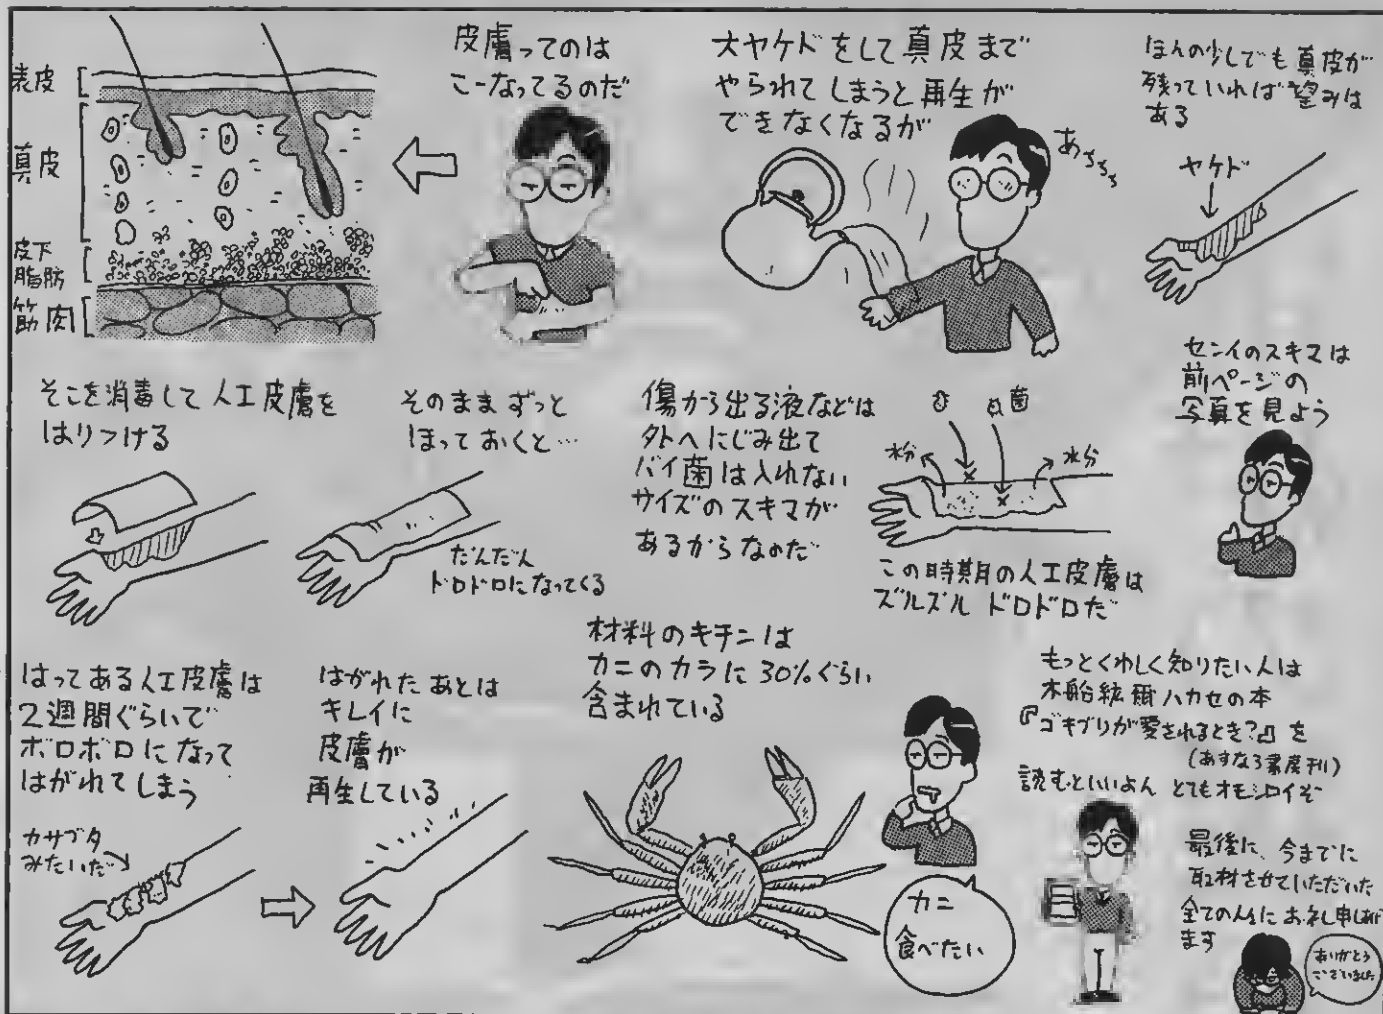 皮膚ってのは
こーなってるのだ
表皮
真皮
皮下
脂肪
筋肉
大ヤケドをして真皮まで
やられてしまうと再生が
できなくなるが
あちちち
ほんの少しでも真皮が
残っていれば望みは
ある
ヤケド
そこを消毒して人工皮膚を
はりつける
そのままずっと
ほっておくと…
だんだん
ドロドロになってくる
傷から出る液などは
外へにじみ出て
バイ菌は入れない
サイズのスキマが
あるからなのだ
菌
水分
水分
この時期の人工皮膚は
ズルズルドロドロだ
センイのスキマは
前ページの
写真を見よう
はってある人工皮膚は
2週間ぐらいで
ボロボロになって
はがれてしまう
カサブタ
みたいだ
はがれたあとは
キレイに
皮膚が
再生している
材料のキチンは
カニのカラに30%ぐらい
含まれている
カニ
食べたい
もっとくわしく知りたい人は
木船紘爾ハカセの本
『ゴキブリが愛されるとき?』を
(あすなろ書房刊)
読むといいよん とてもオモシロイぞ
最後に、今までに
取材させていただいた
全ての人々にお礼申しあげ
ます
ありがとう
ございました